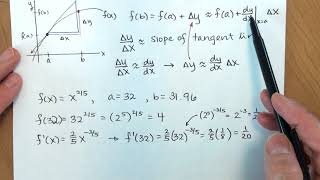 y f(x) f(b) = f(a) + Δy ≈ f(a) + dy/dx|x=a Δx
f(a) Δy
Δx Δy/Δx ≈ slope of tangent line
a b x Δy/Δx ≈ dy/dx → Δy ≈ dy/dx Δx
f(x) = x^2/5, a = 32, b = 31.96
f(32) = 32^2/5 = (2^5)^2/5 = 4 (2^5)^-3/5 = 2^-3 = 1/8
f'(x) = 2/5 x^-3/5 → f'(32) = 2/5 (32)^-3/5 = 2/5 (1/8) = 1/20